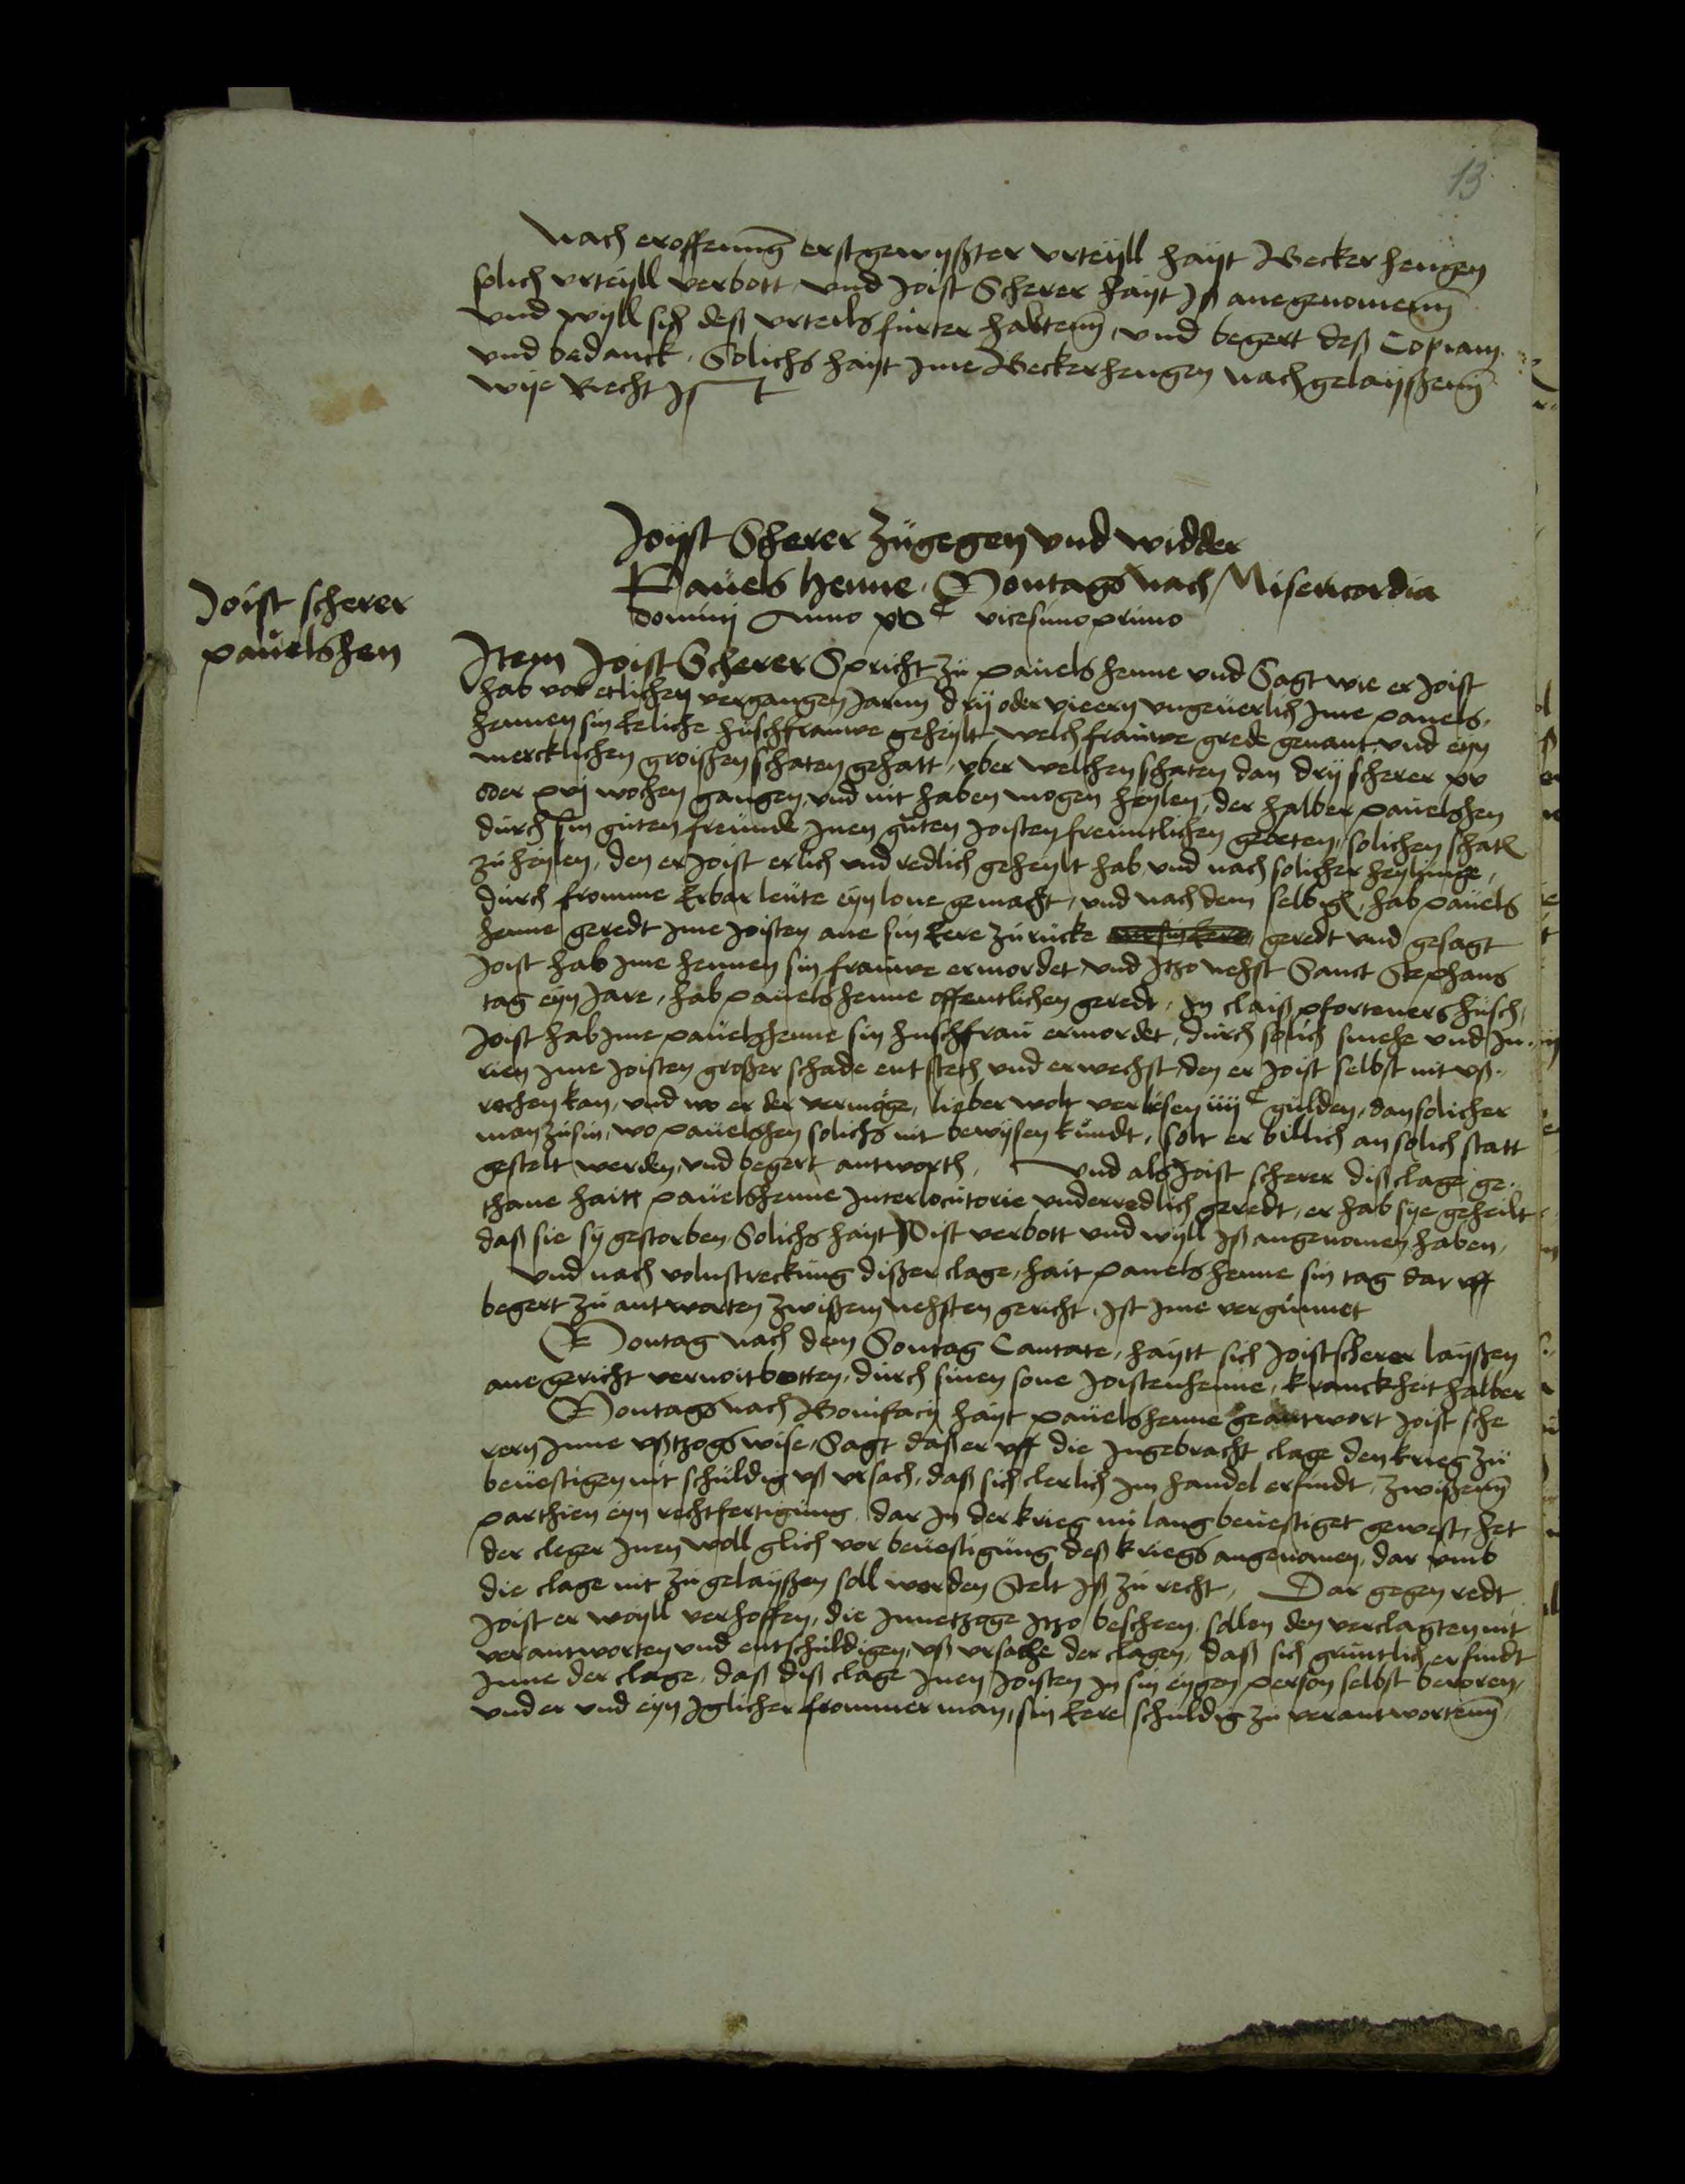 13
Nach eroffenung erstgewyßter urteyll hayt Becker hengen
solich urteyll verbott und Joist Scherer hayt Iß anegenomenn
und wyll sich deß urteils furter haltenn, und begert deß Copiam
und bedanck, Solichs hayt ime Beckerhengen nachgelayßenn
wije Recht Ist
Joyst Scherer zügegen und widder
Pauels henne, Montags nach Misericordia
dominj Anno xvC vicesimo primo
Joist scherer
pauelshen
Item Joist Scherer Spricht zu pauels henne und Sagt wie er Joist
hab vor etlichen vergangen Jarnn drij oder vieern ungeuerlich Ime pauels,
hennen sin Eeliche hüschfrauwe geheylt welch frauwe grede genant, und eyn
mercklichen groißen schaten gehatt, vber welchen schaten dan drij scherer xv
oder xvj wochen gangen, und nit haben mogen heylen, der halber pauelshen
durch sin guten freunde Inen guten Joisten freuntlichen gebeten, solichen schaten
zu heylen, den er Joist erlich und redlich geheylt hab, und nach solicher heylunge,
durch fromme Erbar leute eyn lone gemacht, und nach dem selbigen, hab pauels
henne geredt Ime Joisten ane sin Eere zurücke geredt und gesagt
Joist hab Ime hennen sin frauwe ermordet, und Itzo nehst Sanct Stephans
tag eyn Jare, hab pauels henne offentlichen geredt, In claiß pforteners husch,
Joist hab Ime pauelshenne sin huschfrau ermordet, durch solich smehe und Iniu
rien Ime Joisten großer schade entsteth und erwechst, den er Joist selbst nit uß
rechen kan, und wo er der vermoge, lieber wolt verliesen iiijC gulden, dan solicher
man zu sin, wo pauelshen solichs nit bewysen kundt, solt er billich an solich statt
gestelt werden, und begert antworth, Und als Joist scherer diß clage ge
thane haitt pauelshenne Interlocutorie underredlich geredt, er hab sye geheilt
daß sie sy gestorben, Solichs hayt Joist verbott und wyll Iß angenomen haben,
Und nach volnstreckung dißer clage, hait pauelshenne sin tag dar uff
begert zu antworten zwißem nehsten gericht, Ist Ime vergunnet
Montag nach dem Sontag Cantate, haytt sich Joist scherer layßen
ane gericht vernoitbotten, durch sinen sone Joistenhenne, kranckheit halber
Montags nach Bonifacij hayt pauelshenne geantwort Joist sche
rern Inne ußtzogs wise, Sagt daß er uff die Ingebracht clage den krieg zu
beuestigen nit schuldig uß ursach, daß sich clerlich im handel erfindt, zwißenn
parthien eyn rechtfertigung, dar In der krieg nu lang beuestiget gewest, het
der cleger Inen woll glich vor beuestigung deß kriegs angenomen, dar umb
die clage nit zu gelayßen soll werden Stelt Iß zu recht, Dar gegen redt
Joist er woyll verhoffen, die Innetzoge Itzo bescheen, sollen den verclagten nit
verantworten und entschuldigen, uß ursache der clagen, daß sich gruntlich erfindt
Inne der clage, daß diß clage Inen Joisten In sin eygen person selbst beroren,
und er und eyn Iglicher frommer man, sin Eere schuldig zu verantwortenn